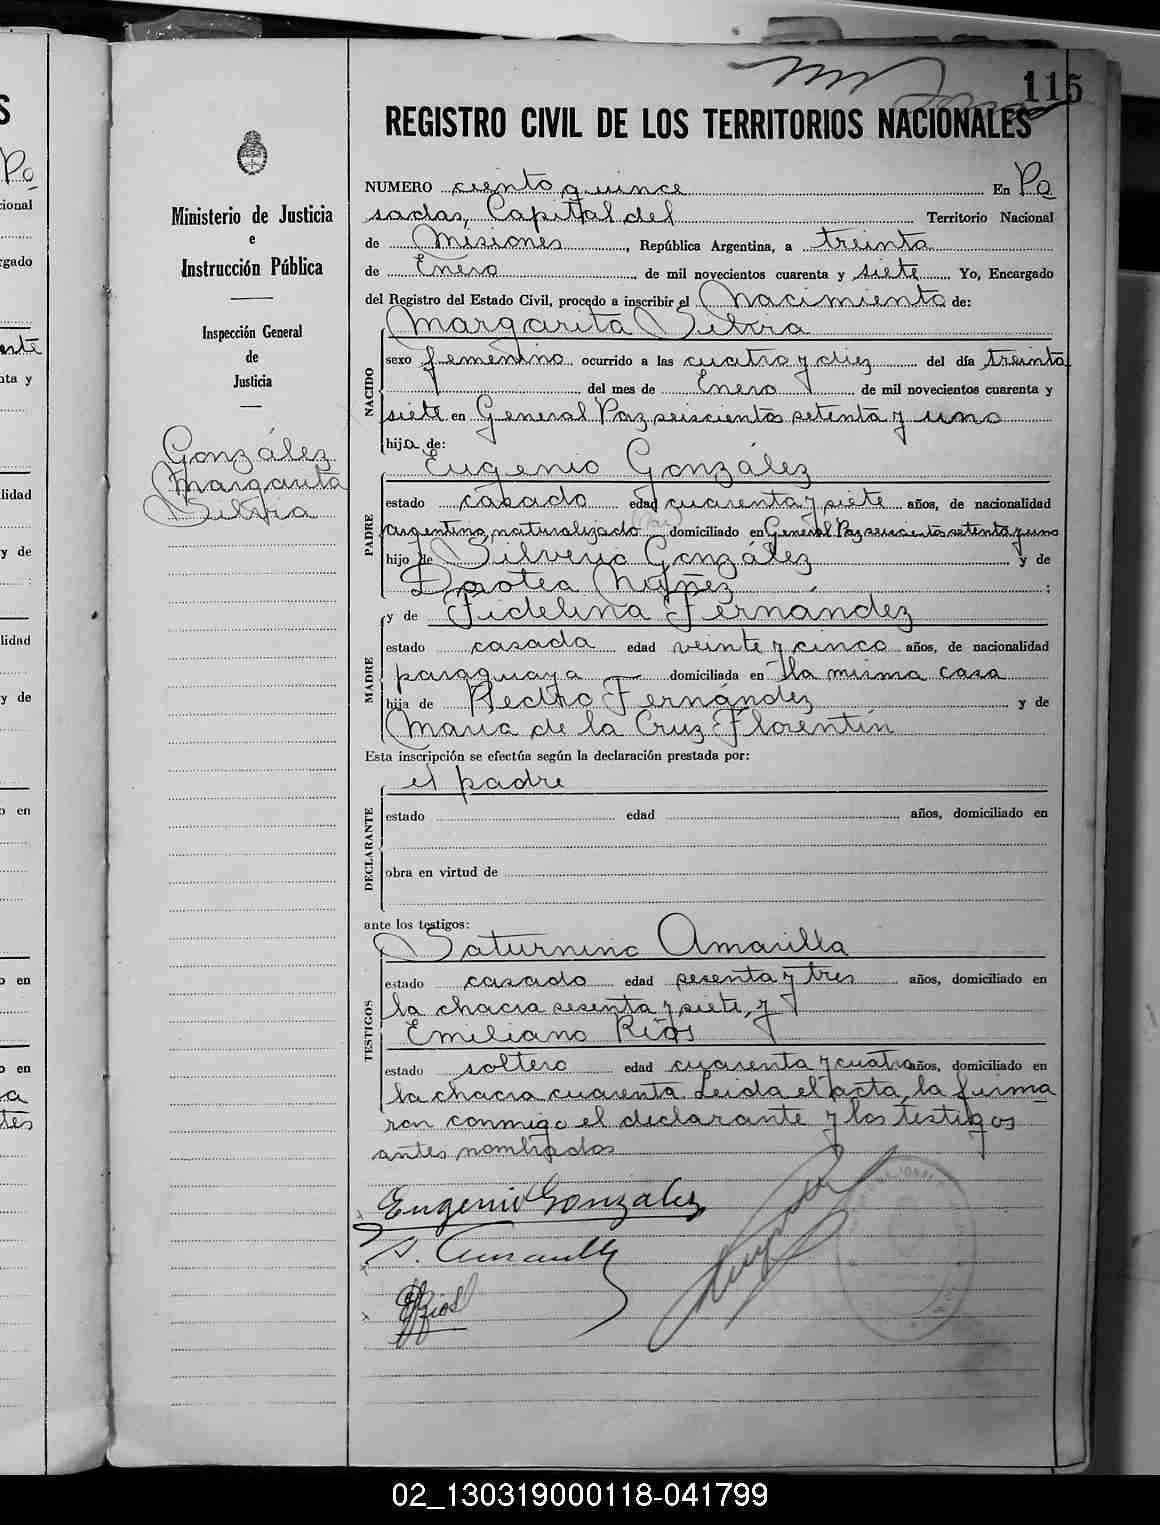 115
REGISTRO CIVIL DE LOS TERRITORIOS NACIONALES
Ministerio de Justicia
e
Instrucción Pública
Inspección General
de
Justicia
González
Margarita
Silvia
NUMERO ciento quince En Po
sadas, Capital del Territorio Nacional
de Misiones, República Argentina, a treinta
de Enero de mil novecientos cuarenta y siete Yo, Encargado
del Registro del Estado Civil, procedo a inscribir el Nacimiento de:
NACIDO
Margarita Silvia
sexo femenino ocurrido a las cuatro y diez del día treinta
del mes de Enero de mil novecientos cuarenta y
siete en General Paz seiscientos setenta y uno
hija de:
PADRE
Eugenio González
estado casado edad cuarenta y siete años, de nacionalidad
argentino naturalizado domiciliado en General Paz seiscientos setenta y uno
hijo de Silverio González y de
Dorotea Núñez ;
MADRE
y de Fidelina Fernández
estado casada edad veinte y cinco años, de nacionalidad
paraguaya domiciliada en la misma casa
hija de Pedro Fernández y de
María de la Cruz Florentín
Esta inscripción se efectúa según la declaración prestada por:
DECLARANTE
el padre
estado edad años, domiciliado en
obra en virtud de
ante los testigos:
TESTIGOS
Saturnino Amarilla
estado casado edad sesenta y tres años, domiciliado en
la chacra sesenta y siete, y
Emiliano Ríos
estado soltero edad cuarenta y cuatro años, domiciliado en
la chacra cuarenta Leída el acta, la firma
ron conmigo el declarante y los testigos
antes nombrados
Eugenio Gonzalez
S. Amarilla
E Rios
02_130319000118-041799